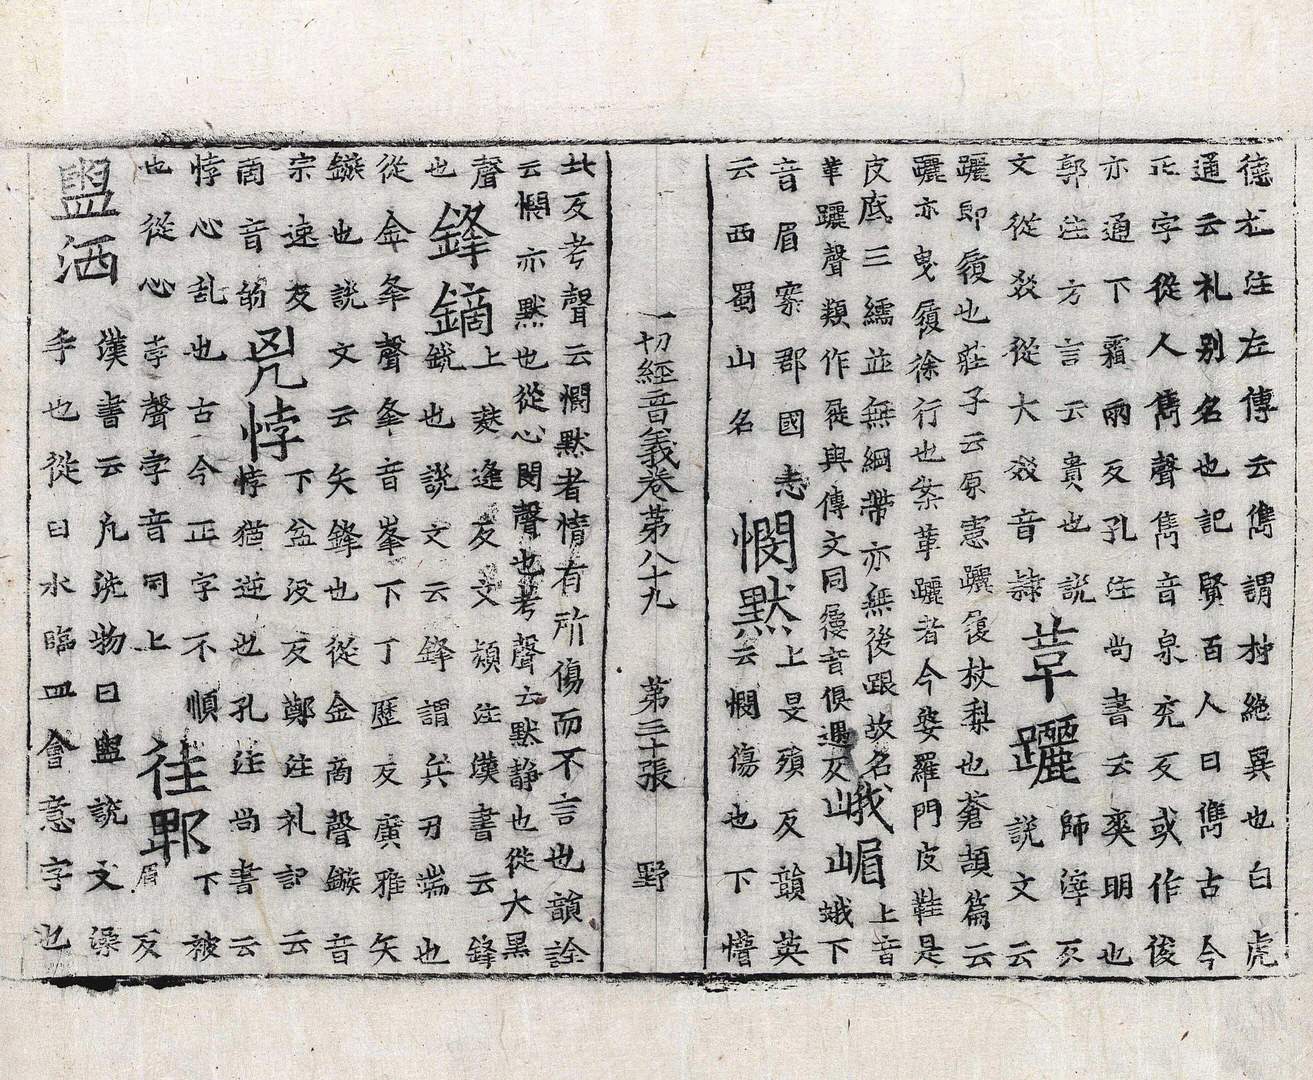 德尤注左傳云儁謂材絶異也白虎
通云礼别名也記賢百人曰儁古今
正字從人雋聲雋音泉兖反或作俊
亦通下霜兩反孔注尚書云爽明也
郭注方言云貴也説
文從㸚從大㸚音隷
革躧
師滓反
説文云
躧即履也莊子云原憲躧履杖梨也蒼頡篇云
躧亦曳履徐行也案革躧者今婆羅門皮鞋是
皮底三繻並無綱帶亦無後跟故名
革躧聲類作屣與傳文同屨音俱遇反
峨嵋
上音
蛾下
音眉案郡國志
云西蜀山名
憫默
上旻殞反韻英
云憫傷也下懵
一切經音義卷第八十九 第三十張 野
北反考聲云憫默者情有所傷而不言也韻詮
云憫亦默也從心閔聲也考聲云默静也從犬黑
聲
也
鋒鏑
上麥逢反文頴注漢書云鋒
鋭也説文云鋒謂兵刃端也
從金夆聲夆音峯下丁歷反廣雅矢
鏃也説文云矢鋒也從金啇聲鏃音
宗速反
啇音的
兇悖
下盆没反鄭注礼記云
悖猶逆也孔注尚書云
悖心乱也古今正字不順
也從心孛聲孛音同上
往郫
下被
眉反
盥洒
漢書云凡洗物曰盥説文澡
手也從臼水臨皿會意字也